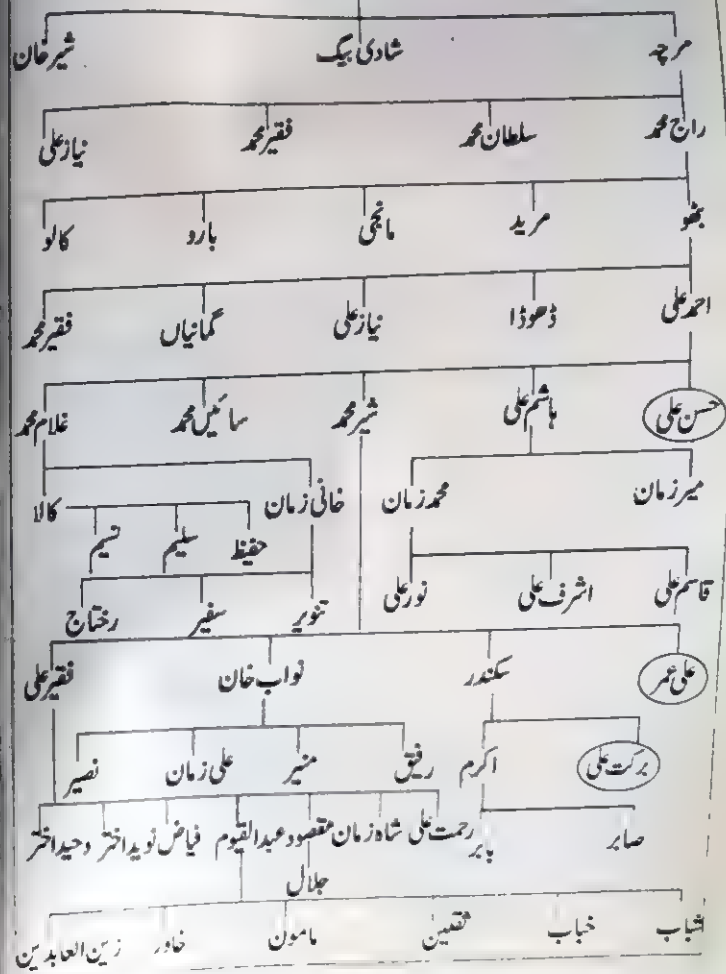 مرچہ شادی بیگ شیر خان
راج محمد سلطان محمد فقیر محمد نیاز علی
بھو مرید مانجی بارو کالو
احمد علی ڈھوڈا نیاز علی گمانیاں فقیر محمد
حسن علی ہاشم علی شیر محمد سائیں محمد غلام محمد
میر زمان محمد زمان خانی زمان کالا
حفیظ سلیم نسیم
قاسم علی اشرف علی نور علی تنویر سفیر رختاج
علی عمر سکندر نواب خان فقیر علی
برکت علی اکرم رفیق منیر علی زمان نصیر
صابر بابر رحمت علی شاہ زمان مقصود عبدالقیوم فیاض نوید اختر وحید اختر
جلال
خباب ثقلین مامون خاور زین العابدین